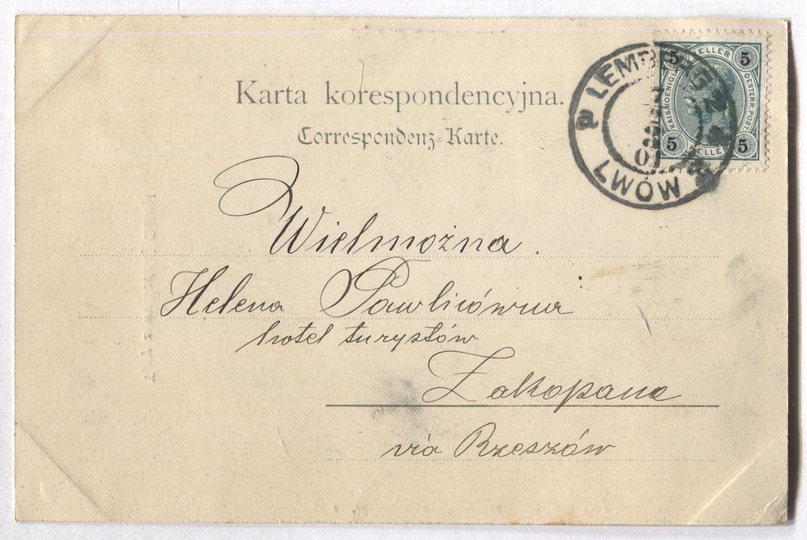 Karta korespondencyjna.
Correspondenz-Karte.
LEMBERG 2
LWÓW
01
5 HELLER 5
KAIS. KOENIGL. OESTERR. POST.
5 HELLER 5
Wielmożna.
Helena Pawlicówna
hotel turystów
Zakopane
via Rzeszów